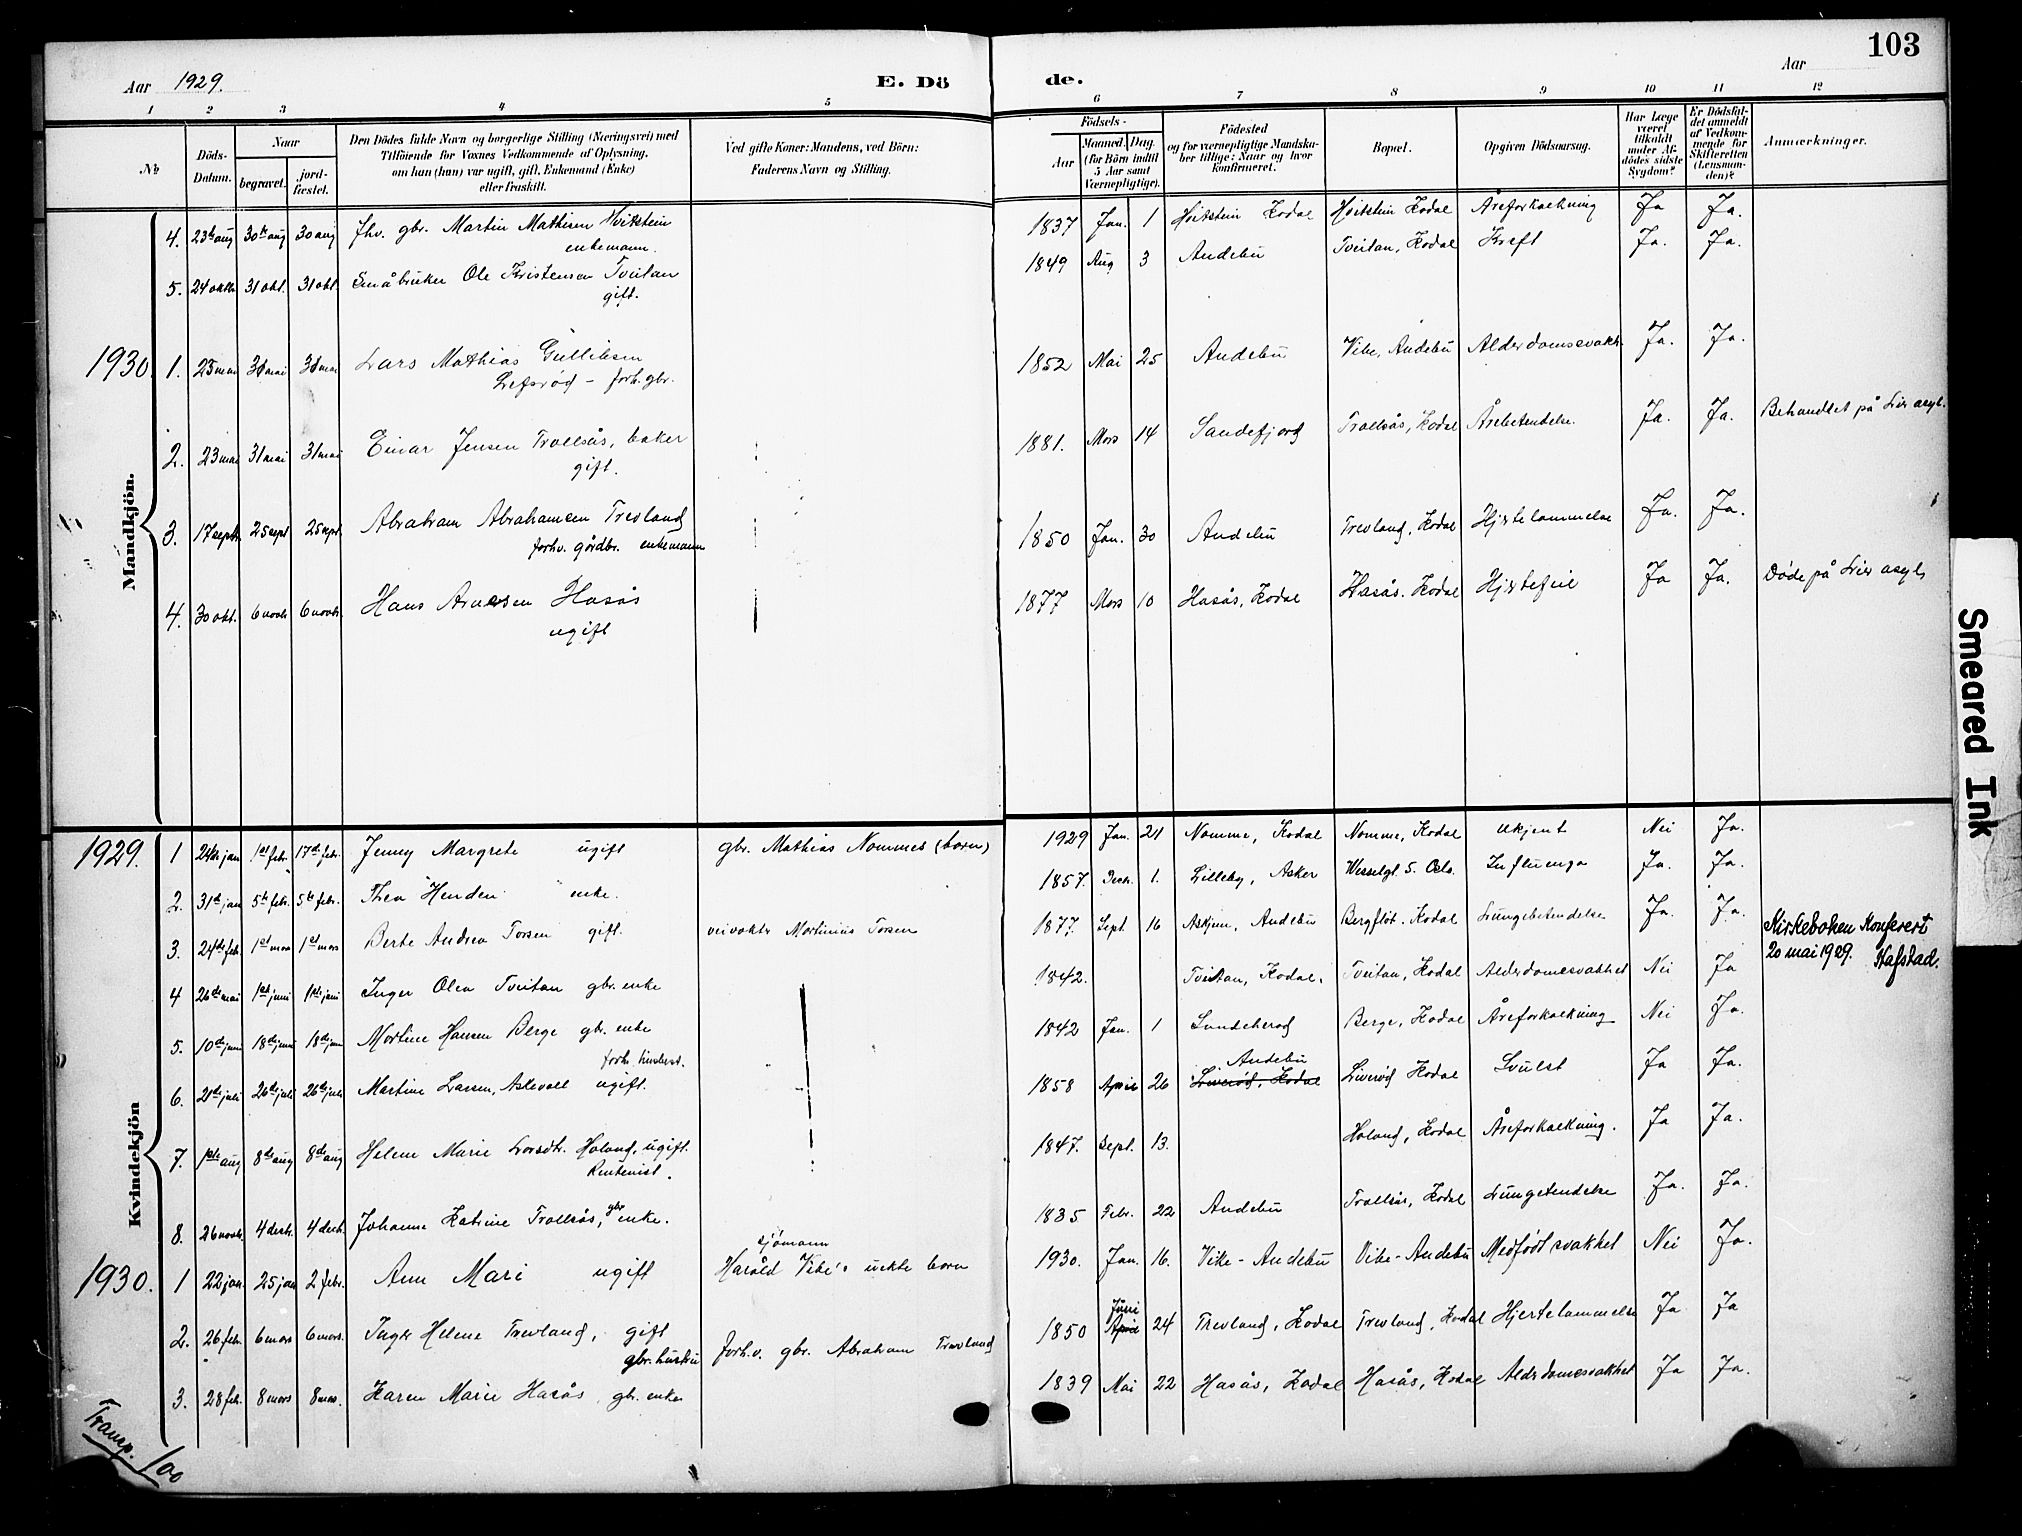 103
Aar 1929. E. Dö de. Aar
1 2 3 4 5 6 7 8 9 10 11 12
No
Döds-Datum.
Naar
begravet.
jord-fæstet.
Den Dödes fulde Navn og borgerlige Stilling (Næringsvei) med
Tilföiende for Voxnes Vedkommende af Oplysning,
om han (hun) var ugift, gift, Enkemand (Enke)
eller fraskilt.
Ved gifte Koner: Mandens, ved Börn:
Faderens Navn og Stilling.
Födsels-
Aar
Maaned. Dag.
(for Börn indtil
5 Aar samt
Værnepligtige).
Födested
og for værnepligtige Mandska-
ber tillige: Naar og hvor
konfirmeret.
Bopæl.
Opgiven Dödsaarsag.
Har Læge
været
tilkaldt
under Af-
dödes sidste
Sygdom?
Er Dödsfal-
det anmeldt
af Vedkom-
mende for
Skifteretten
(Lensman-
den)?
Anmærkninger.
Mandkjön.
4. 23de aug 30te aug 30 aug fhv. gbr. Martin Mathisen Hvitstein 1837 Jan. 1 Hvitstein Kodal Hvitstein Kodal Åreforkalkning Ja Ja.
enkemann.
5. 24 oktbr 31 okt. 31 okt. Småbruker Ole Kristensen Tveitan 1849 Aug 3 Andebu Tveitan, Kodal Kreft Ja. Ja.
gift.
1930. 1. 25 mai 31 mai 31 mai Lars Mathias Gulliksen 1852 Mai 25 Andebu Vike, Andebu Alderdomssvakh. Ja. Ja.
Lefsrød – forh. gbr.
2. 23 mai 31 mai 31 mai Einar Jensen Trollsås, baker 1881. Mars 14 Sandefjord Trollsås, Kodal Årebetendelse. Ja. Ja. Behandlet på Lier asyl.
gift.
3. 17 septr. 25 sept 25 sept. Abraham Abrahamsen Trevland 1850 Jan. 30 Andebu Trevland, Kodal Hjertelammelse Ja. Ja.
forhv. gårdbr. enkemann
4. 30 okt. 6 novbr 6 novbr. Hans Arnesen Hasås 1877 Mars 10 Hasås, Kodal Hasås. Kodal Hjertefeil Ja Ja. Døde på Lier asyl,
ugift
Kvindekjön
1929. 1 24de jan 1st febr. 17de febr. Jenny Margrete ugift gbr. Mathias Nommes (barn) 1929 Jan. 21 Nomme, Kodal Nomme, Kodal ukjent Nei Ja.
2. 31te jan 5te febr. 5te febr. Thea Henden enke. 1857. Decbr. 1. Lilleby, Asker Wesselgt. 5. Oslo. Influenza Ja. Ja.
3. 24de feb. 1st mars 1st mars Berte Andrea Torsen gift. veivokter Martinius Torsen 1877. Sept 16 Askjem, Andebu Bergflot. Kodal Lungebetendelse Ja. Ja. Kirkeboken Konferert
20 mai 1929. Hafstad.
4 26de mai 1st juni 1ste juni Inger Olea Tveitan gbr. enke 1842. Tveitan, Kodal. Tveitan, Kodal Alderdomssvakhet Nei Ja
5. 10de juni 18de juni 18de juni Martine Hansen Berge gbr. enke 1842 Jan. 1 Berge, Kodal Åreforkalkning Nei Ja.
6. 21de juli 26de juli 26de juli Martine Larsen, Aslevall ugift. 1858 April 26 Liverød, Kodal Andebu Liverød Kodal Svulst Ja Ja.
7. 1ste aug 8de aug 8de aug Helene Marie Larsdtr. Holand, ugift. 1847. Sept. 13. Holand, Kodal Åreforkalkning. Ja Ja.
Rentenist.
8. 26 novbr. 4 decbr. 4 decbr. Johanne Katrine Trollsås, gbr enke. 1835 Febr. 22 Andebu Trollsås, Kodal Lungetendelse Ja. Ja.
1930. 1 22 jan. 25 jan 2 febr. Ann Mari ugift sjømann Harald Vike's uekte barn 1930. Jan. 16. Vike - Andebu Vike - Andebu Medfødt svakhet Nei Ja.
2. 26 febr. 6 mars 6 mars. Inger Helene Trevland, gift forh.v. gbr. Abraham Trevland 1850 April Juni 24 Trevland, Kodal Trevland, Kodal Hjertelammelse Ja Ja
gbr. hustru
3. 28 feb. 8 mars 8 mars. Karen Marie Hasås, gbr. enke 1839 Mai 22 Hasås, Kodal Hasås, Kodal Alderdomssvakhet Ja Ja.
Transp. 100
Smeared Ink